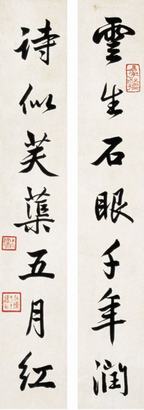 雲生石眼千年潤
诗似芙蕖五月紅